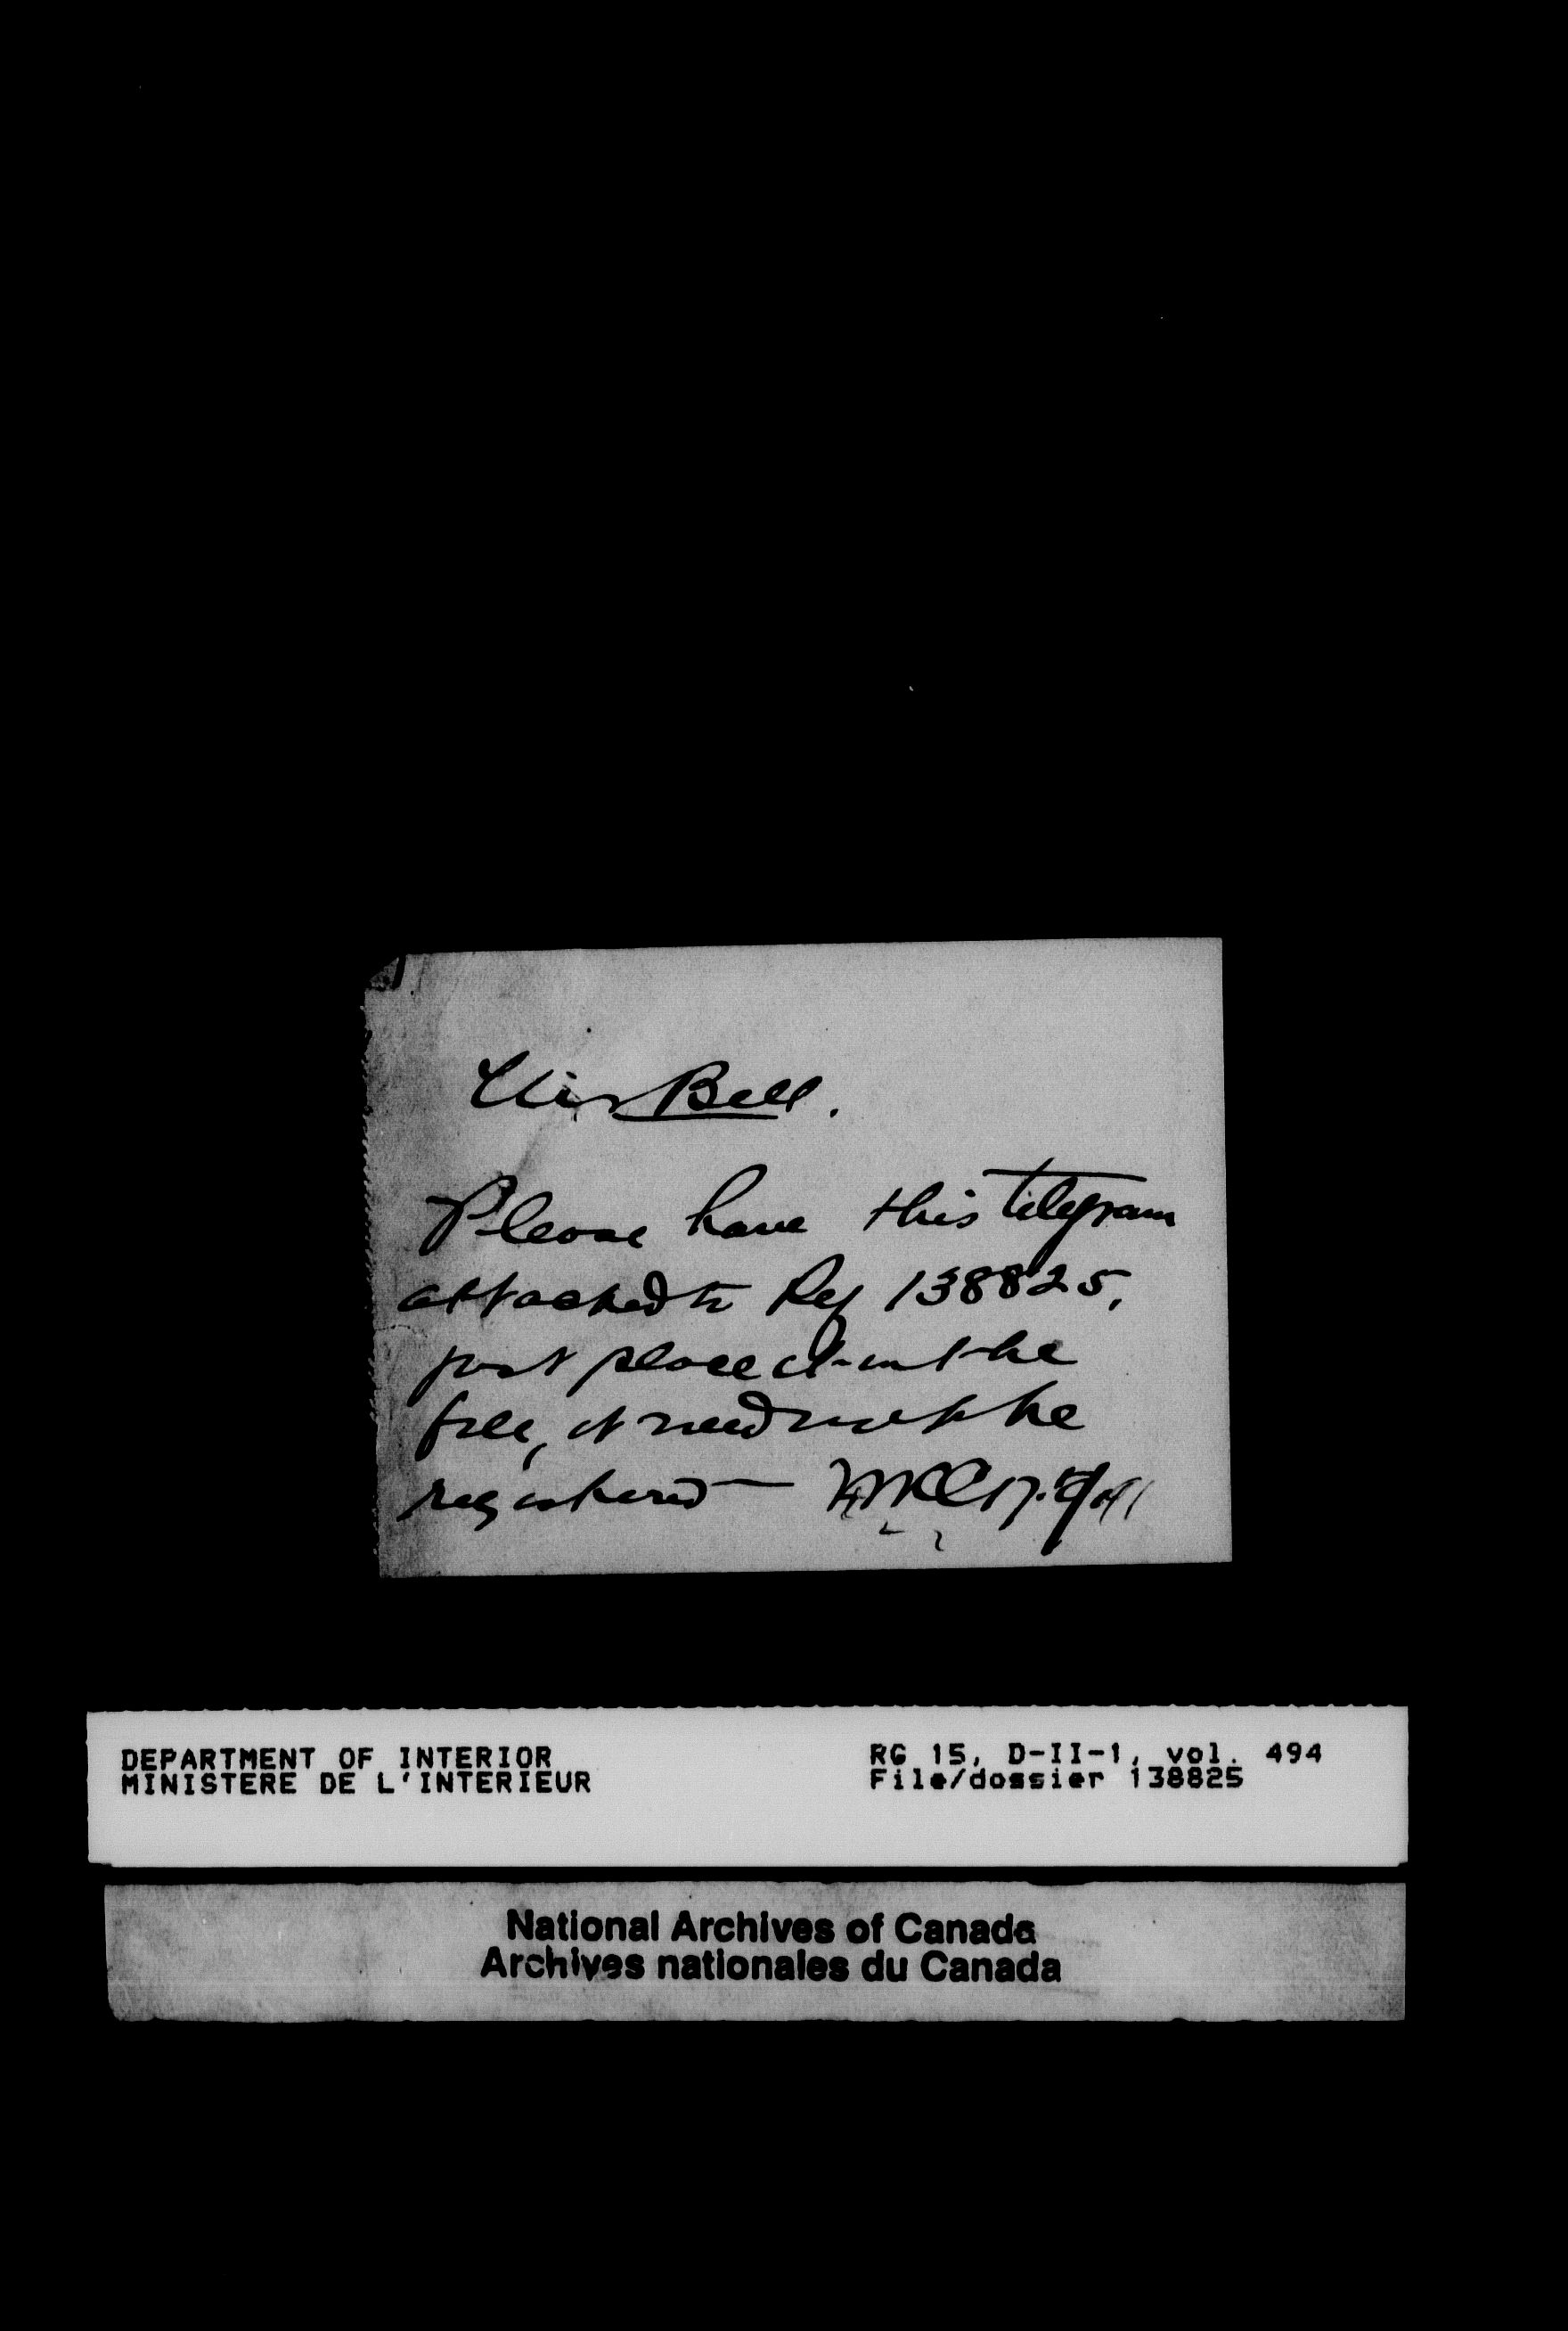 Bell.
Please have this telegram
attached to Ref 138825,
just place it in the
file, it need not be
registered —
DEPARTMENT OF INTERIOR
MINISTERE DE L'INTERIEUR
RG 15, D-II-1, vol. 494
File/dossier 138825
National Archives of Canada
Archives nationales du Canada